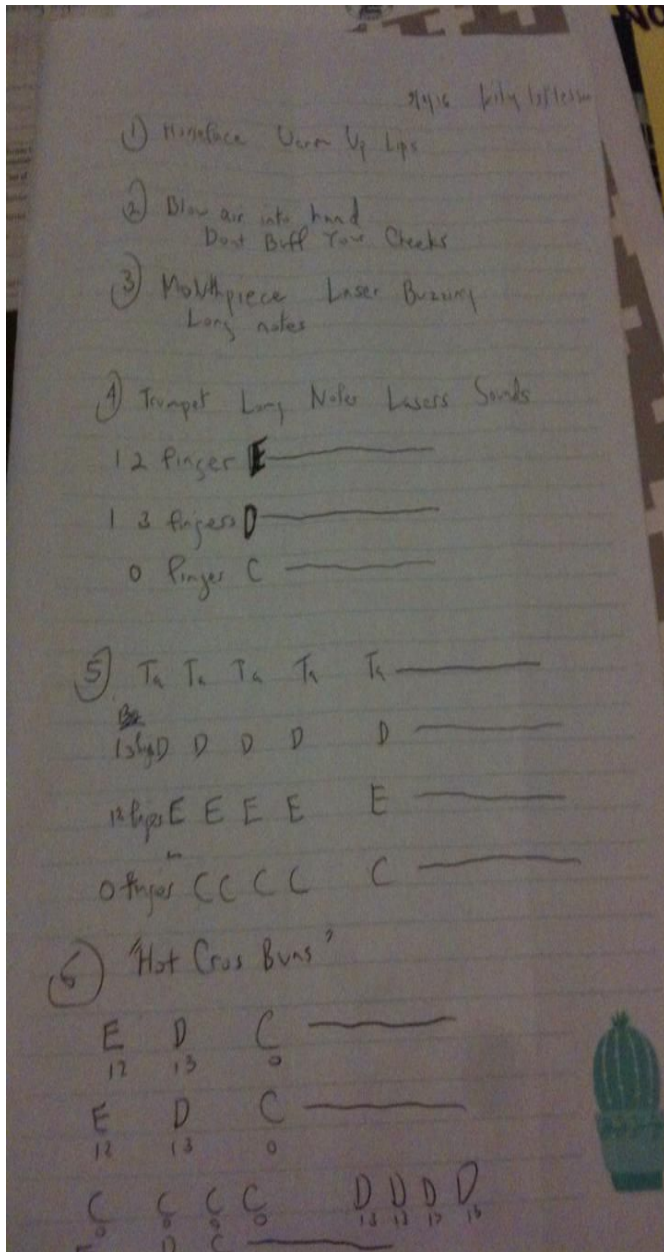 NO
9/4/16 Lily
① Horseface Warm Up Lips
② Blow air into hand
Dont Buff Your Cheeks
③ Mouthpiece Laser Buzzing
Long notes
④ Trumpet Long Notes Lasers Sounds
1 2 finger E
1 3 fingers D
0 finger C
⑤ Ta Ta Ta Ta Ta
13 D D D D D
12 E E E E E
0 finger C C C C C
⑥ "Hot Cros Buns"
E D C
12 13 0
E D C
12 13 0
C C C C D D D D
0 0 0 0 13 13 13 13
E D C